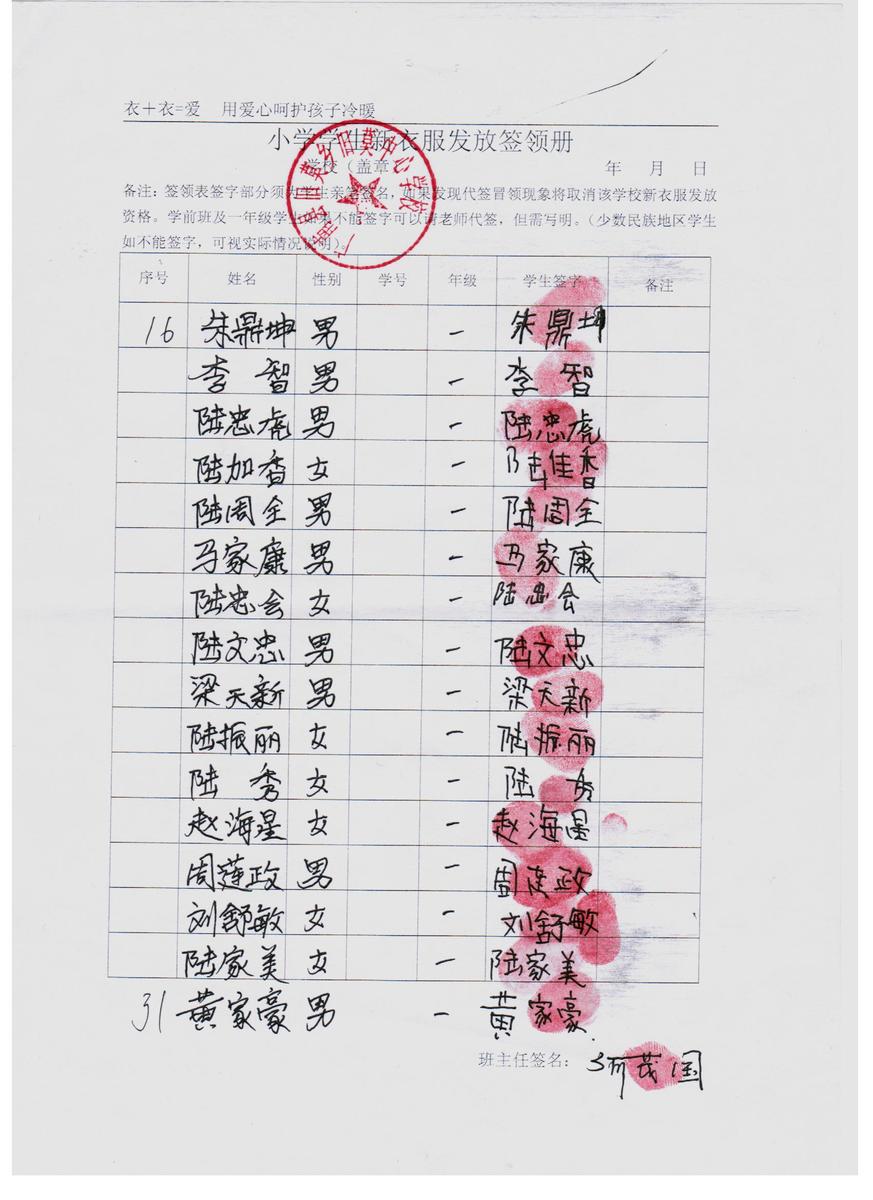 衣＋衣=爱 用爱心呵护孩子冷暖
小学学生新衣服发放签领册
学校（盖章） 年 月 日
广南县旧莫乡旧莫中心学校
备注：签领表签字部分须为学生亲笔签名，如果发现代签冒领现象将取消该学校新衣服发放
资格。学前班及一年级学生如果不能签字可以请老师代签，但需写明。（少数民族地区学生
如不能签字，可视实际情况说明）。
序号 姓名 性别 学号 年级 学生签字 备注
16 朱鼎坤 男 一 朱鼎坤
李智 男 一 李智
陆忠虎 男 一 陆忠虎
陆加香 女 一 陆佳香
陆周全 男 一 陆周全
马家康 男 一 马家康
陆忠会 女 一 陆忠会
陆文忠 男 一 陆文忠
梁天新 男 一 梁天新
陆振丽 女 一 陆振丽
陆秀 女 一 陆秀
赵海星 女 一 赵海星
周莲政 男 一 周莲政
刘舒敏 女 一 刘舒敏
陆家美 女 一 陆家美
31 黄家豪 男 一 黄家豪
班主任签名： 何茂国